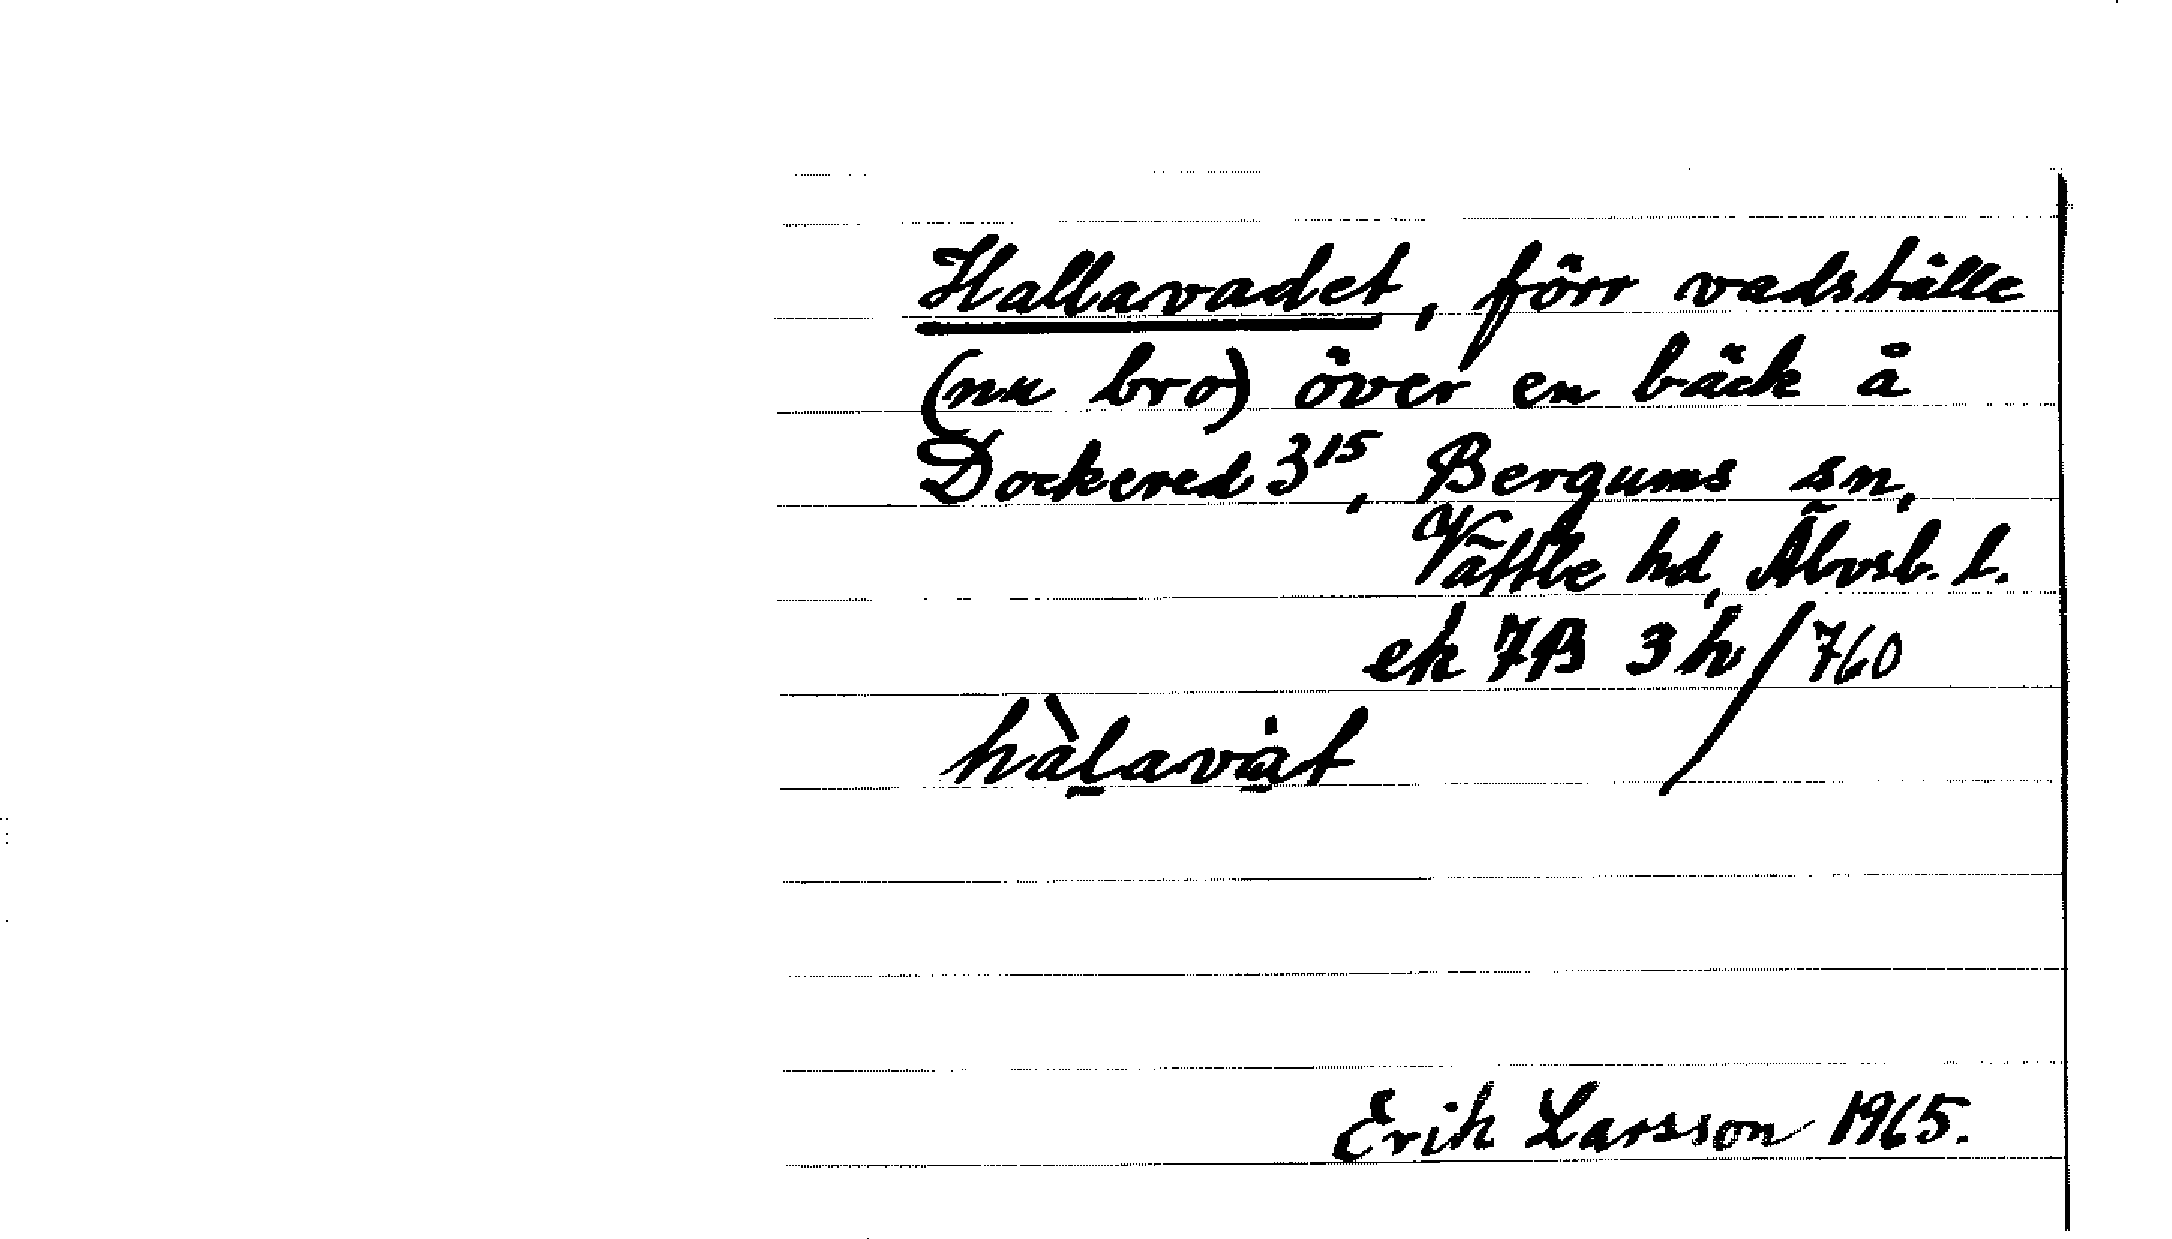 Hallavadet, förr vadställe
(nu bro) över en bäck å
Dockered 3¹⁵, Bergums sn,
Vättle hd, Älvsb. l.
ek 7B 3h / 760
hàlavȧt
Erik Larsson 1965.